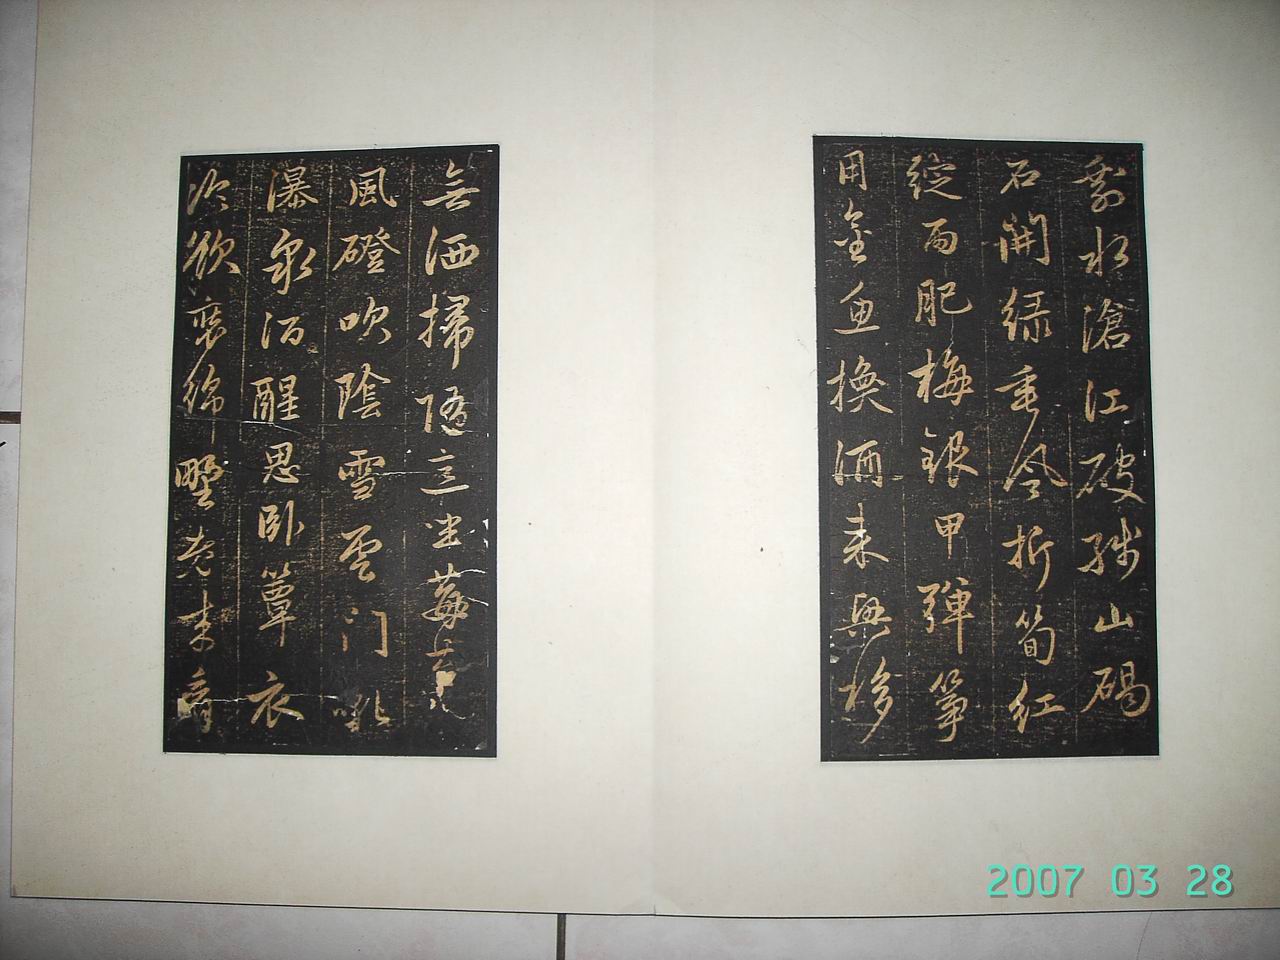 剩水滄江破殘山碣
石開綠垂風折筍紅
綻雨肥梅銀甲彈箏
用金魚換酒來興移
無洒掃隨意坐莓苔
風磴吹陰雪雲門吼
瀑泉酒醒思臥簟衣
冷欲裝綿野老來看
2007 03 28